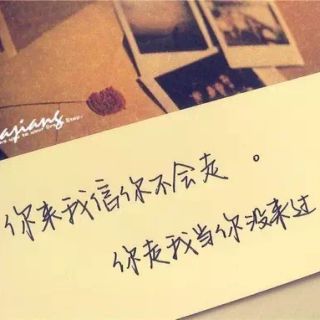 ajiang
你来我信你不会走。
你走我当你没来过